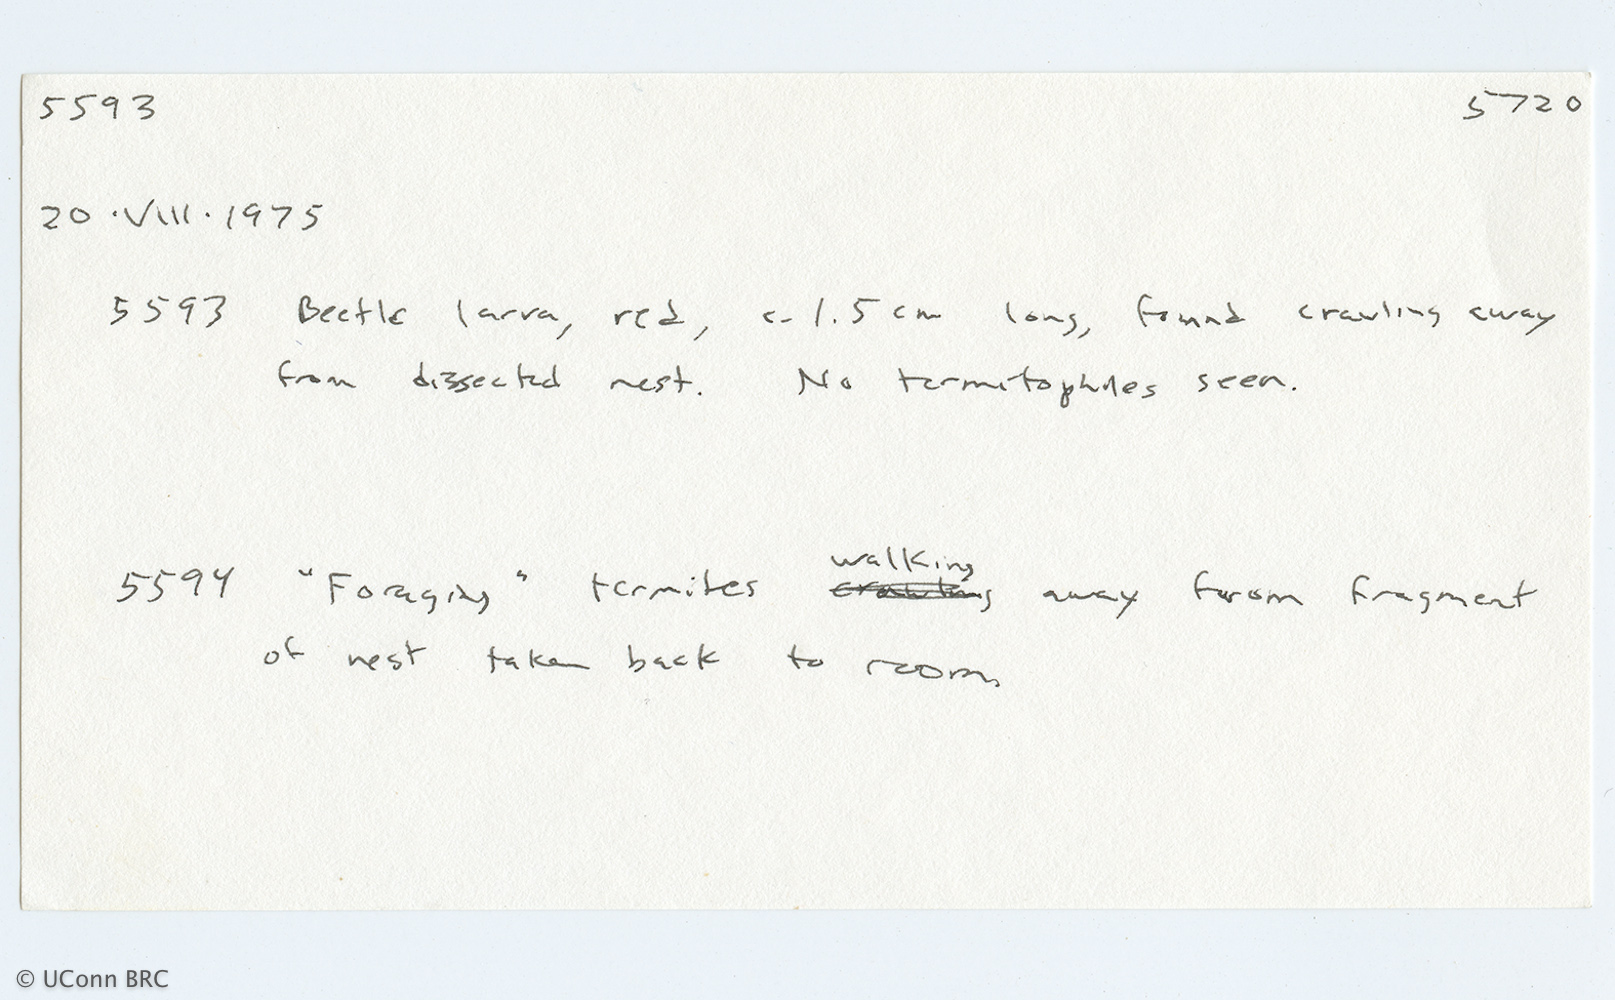 5593 5720
20·VIII·1975
5593 Beetle larva, red, c. 1.5 cm long, found crawling away
from dissected nest. No termitophiles seen.
walking
5594 "Foraging" termites crawling away from fragment
of nest taken back to room.
© UConn BRC